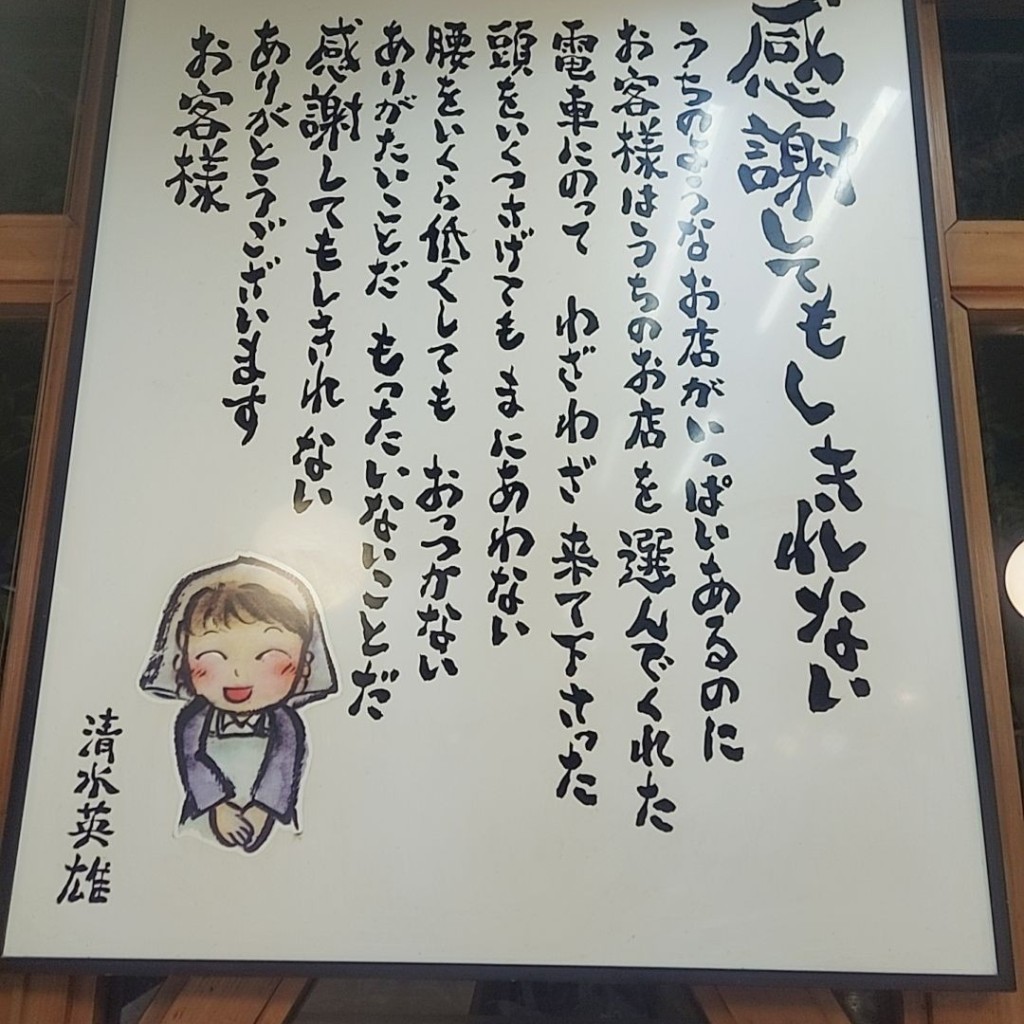 感謝してもしきれない
うちのようなお店がいっぱいあるのに
お客様はうちのお店を選んでくれた
電車にのって わざわざ来て下さった
頭をいくつさげても まにあわない
腰をいくら低くしても おっつかない
ありがたいことだ もったいないことだ
感謝してもしきれない
ありがとうございます
お客様
清水英雄